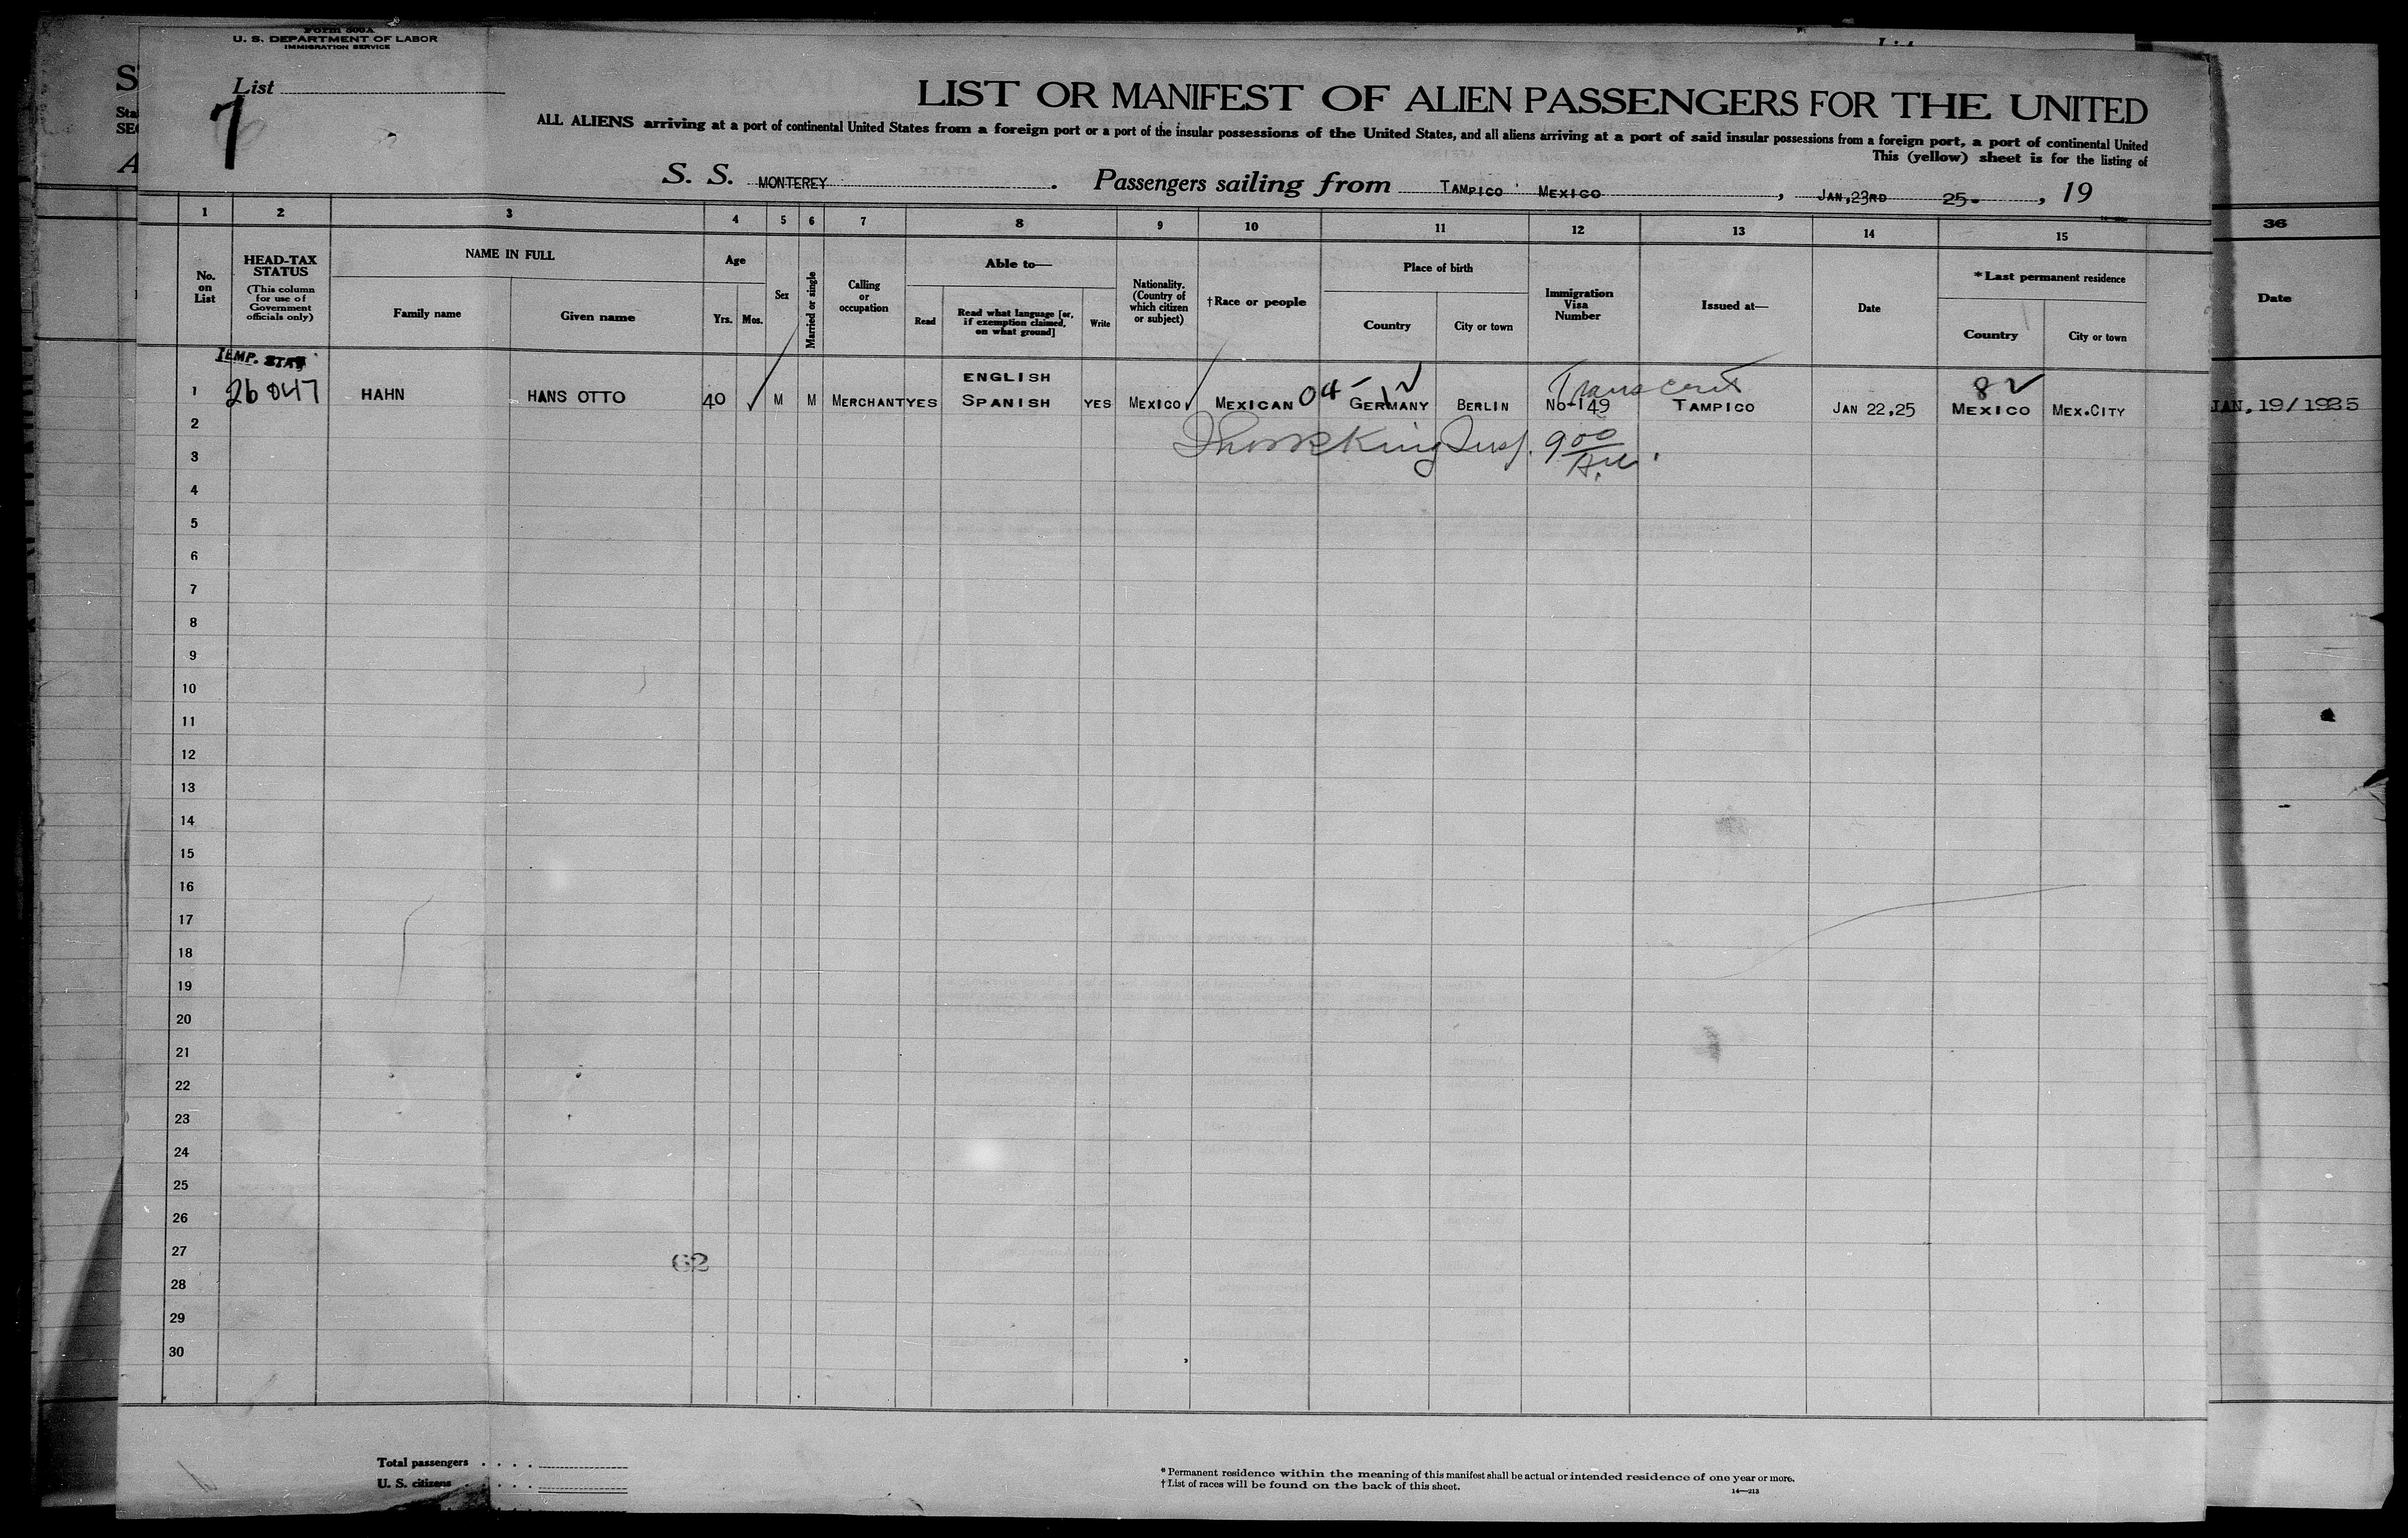 Form 500A
U. S. DEPARTMENT OF LABOR
IMMIGRATION SERVICE
List
7
LIST OR MANIFEST OF ALIEN PASSENGERS FOR THE UNITED
ALL ALIENS arriving at a port of continental United States from a foreign port or a port of the insular possessions of the United States, and all aliens arriving at a port of said insular possessions from a foreign port, a port of continental United
This (yellow) sheet is for the listing of
S. S. MONTEREY. Passengers sailing from TAMPICO MEXICO, JAN,23RD 25-, 19
1 2 3 4 5 6 7 8 9 10 11 12 13 14 15 36
No. on List
HEAD-TAX STATUS
(This column for use of Government officials only)
NAME IN FULL
Family name
Given name
Age
Yrs. Mos.
Sex
Married or single
Calling or occupation
Able to—
Read
Read what language [or, if exemption claimed, on what ground]
Write
Nationality. (Country of which citizen or subject)
†Race or people
Place of birth
Country
City or town
Immigration Visa Number
Issued at—
Date
*Last permanent residence
Country
City or town
Date
TEMP. STAY
ENGLISH
1 26 047 HAHN HANS OTTO 40 M M MERCHANT YES SPANISH YES MEXICO MEXICAN 04 GERMANY BERLIN No-149 TAMPICO JAN 22,25 82 MEXICO MEX.CITY JAN, 19/1925
2
King Insp. 9 00 A.M.
3
4
5
6
7
8
9
10
11
12
13
14
15
16
17
18
19
20
21
22
23
24
25
26
27
62
28
29
30
Total passengers . . . .
U. S. citizens . . . .
* Permanent residence within the meaning of this manifest shall be actual or intended residence of one year or more.
† List of races will be found on the back of this sheet.
14—213